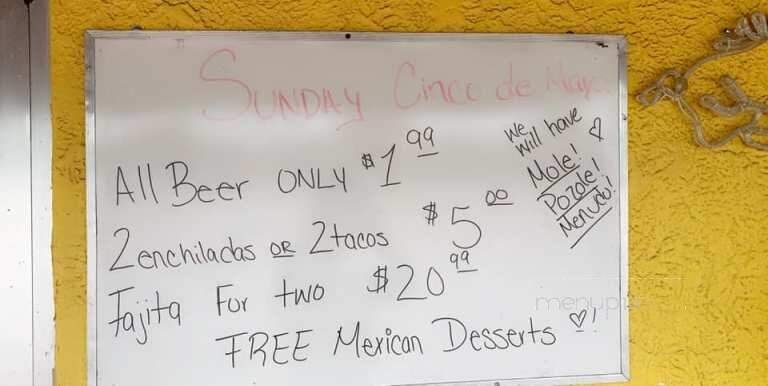 SUNDAY Cinco de Mayo
All Beer ONLY $1 99
2 enchiladas OR 2 tacos $5 00
Fajita For two $20 99
FREE Mexican Desserts ♡!
we
will have ♡
Mole!
Pozole!
Menudo!